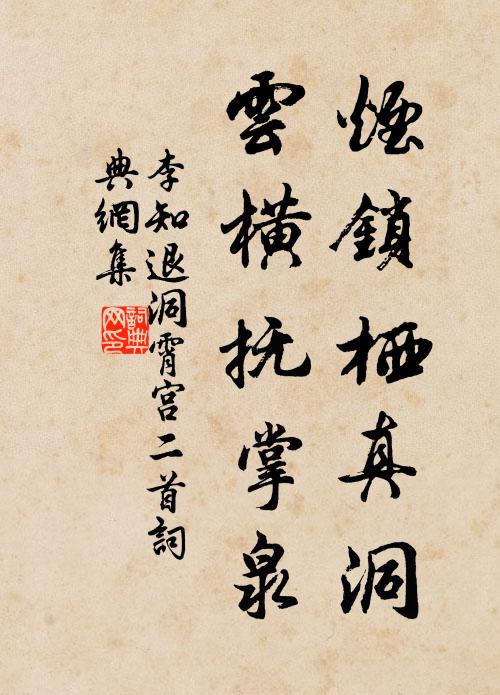 煙鎖栖真洞
雲橫抚掌泉
李知退洞霄宮二首詞
典網集
詞典
网印